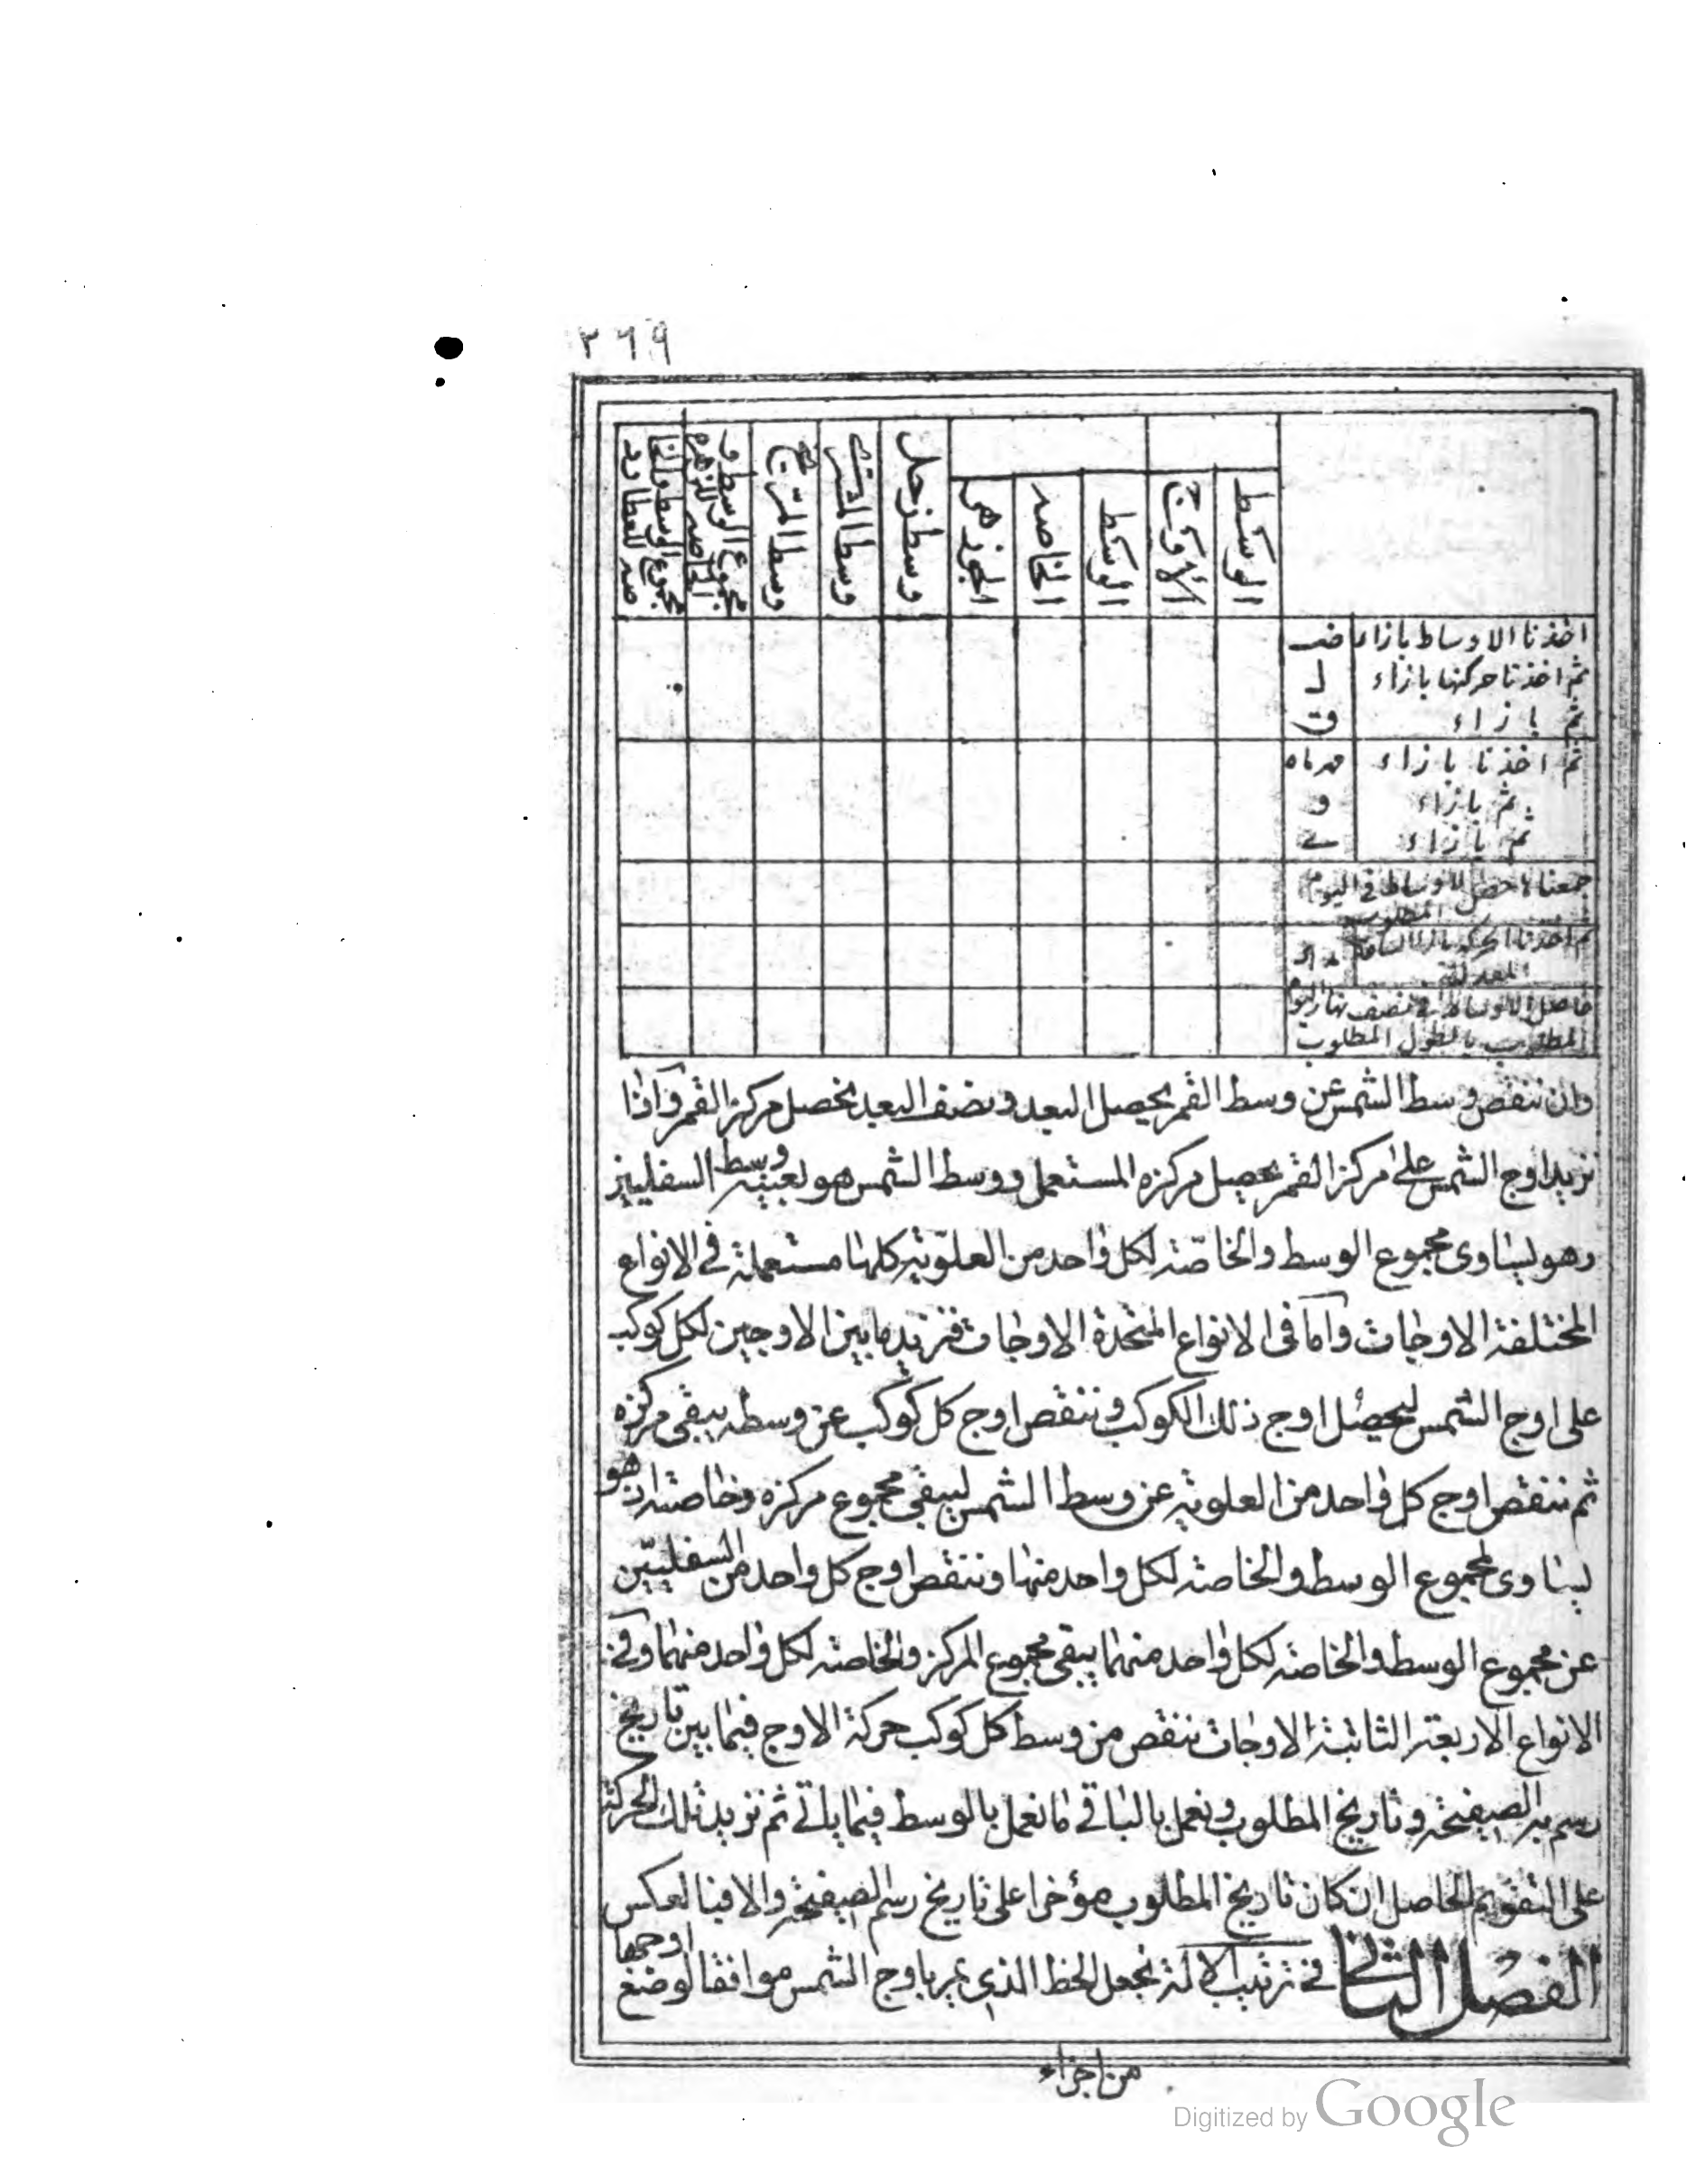 ٢٦٩
الوسط
الأوج
الوسط
الخاصه
الجوزهر
وسط زحل
وسط المشترى
وسط المريخ
مجموع الوسط و الخاصه للزهره
مجموع الوسط والخا صه للعطارد
اخذنا الاوساط بازاء ضب
ثم اخذنا حركتها بازاء ل
ثم بازاء
ثم اخذنا بازاء مهرماه
ثم بازاء و
ثم بازاء
جمعنا حصل الاوساط فى اليوم المطلوب
ثم اخذنا الحركه بازاء الساعه المعدلة
حاصل الاوساط فى نصف نهار اليوم
المطلوب بالطول المطلوب
وان ننقص وسط الشمس عن وسط القمر يحصل البعد ونضف البعد يحصل مركز القمر واذا
نزيد اوج الشمس على مركز القمر يحصل مركزه المستعمل ووسط الشمس هو بعينه وسط السفليين
وهو يساوى مجموع الوسط والخاصّة لكل واحد من العلوّية كلها مستعملة فى الانواع
المختلفة الاوجات واما فى الانواع المتحدة الاوجات فنزيد ما بين الاوجين لكل كوكب
على اوج الشمس ليحصل اوج ذلك الكوكب وننقص اوج كل كوكب عن وسطه يبقى مركزه
ثم ننقص اوج كل واحد من العلوية عن وسط الشمس ليبقى مجموع مركزه وخاصته اذ هو
يساوى لمجموع الوسط والخاصة لكل واحد منها وننقص اوج كل واحد من السفليّين
عن مجموع الوسط والخاصة لكل واحد منهما يبقى مجموع المركز والخاصة لكل واحد منهما وفى
الانواع الاربعة الثابتة الاوجات ننقص من وسط كل كوكب حركة الاوج فيما بين تاريخ
رسم الصفيحة وتاريخ المطلوب ونعمل بالباقى ما نعمل بالوسط فيما ياتى ثم نزيد تلك الحركة
على التقويم الحاصل ان كان تاريخ المطلوب مؤخرا على تاريخ رسم الصفيحة والا فبالعكس
الفصل الثانى فى ترتيب الالة نجعل الخط الذى يمر باوج الشمس موافقا لوضع اوجها
من اجزاء
Digitized by Google